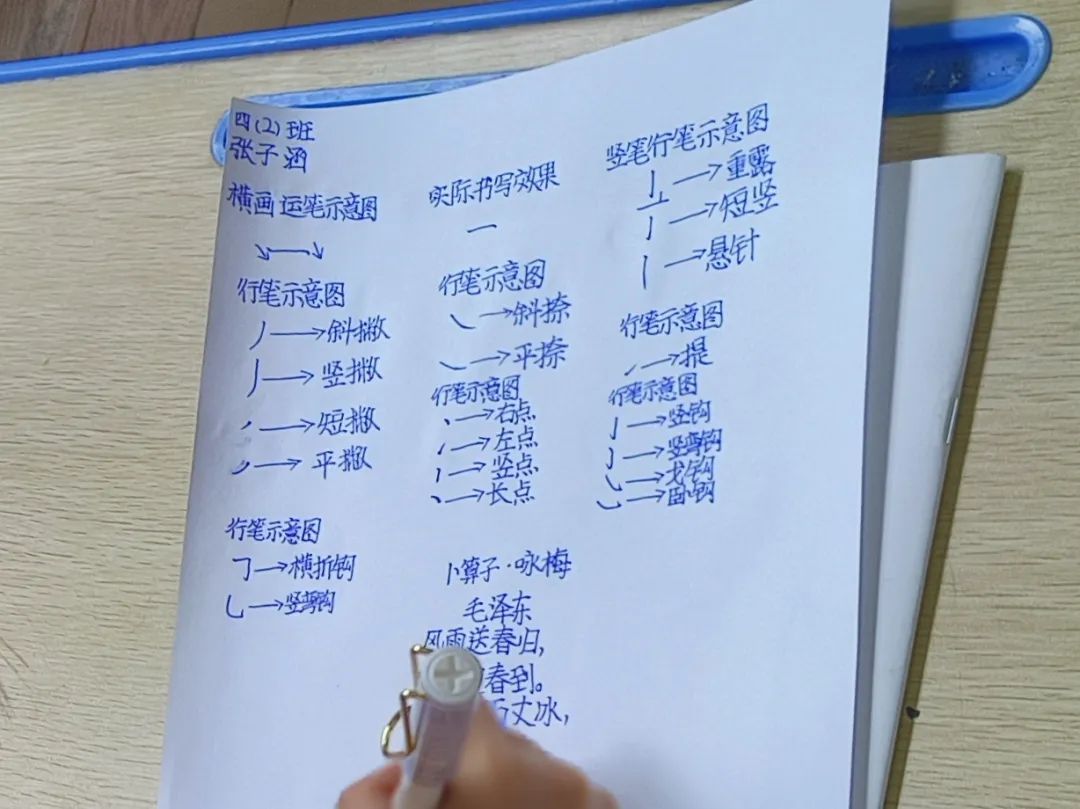 四(2)班
张子涵
横画运笔示意图
行笔示意图
→斜撇
→竖撇
→短撇
→平撇
行笔示意图
→横折钩
→竖弯钩
实际书写效果
行笔示意图
→斜捺
→平捺
行笔示意图
→右点
→左点
→竖点
→长点
竖笔行笔示意图
→重露
→短竖
→悬针
行笔示意图
→提
行笔示意图
→竖钩
→竖弯钩
→戈钩
→卧钩
卜算子·咏梅
毛泽东
风雨送春归,
春到。
丈冰,